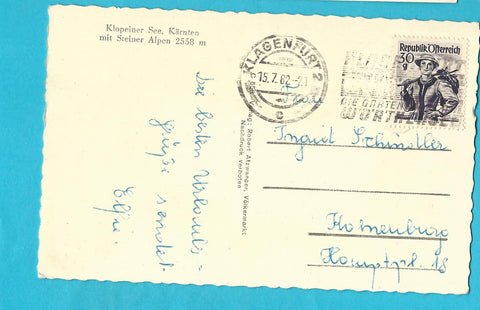 Klopeiner See, Kärnten
mit Steiner Alpen 2558 m
Die besten Urlaubs=
grüße sendet
Elfi.
Verlag: Robert Atzwanger, Völkermarkt
Nachdruck verboten
KLAGENFURT 2
15.7.62
c
DIE GÄRTEN
WÖRTHERSEE
Republik Österreich
30 g
Ingrid Schindler
Korneuburg
Hauptpl. 18